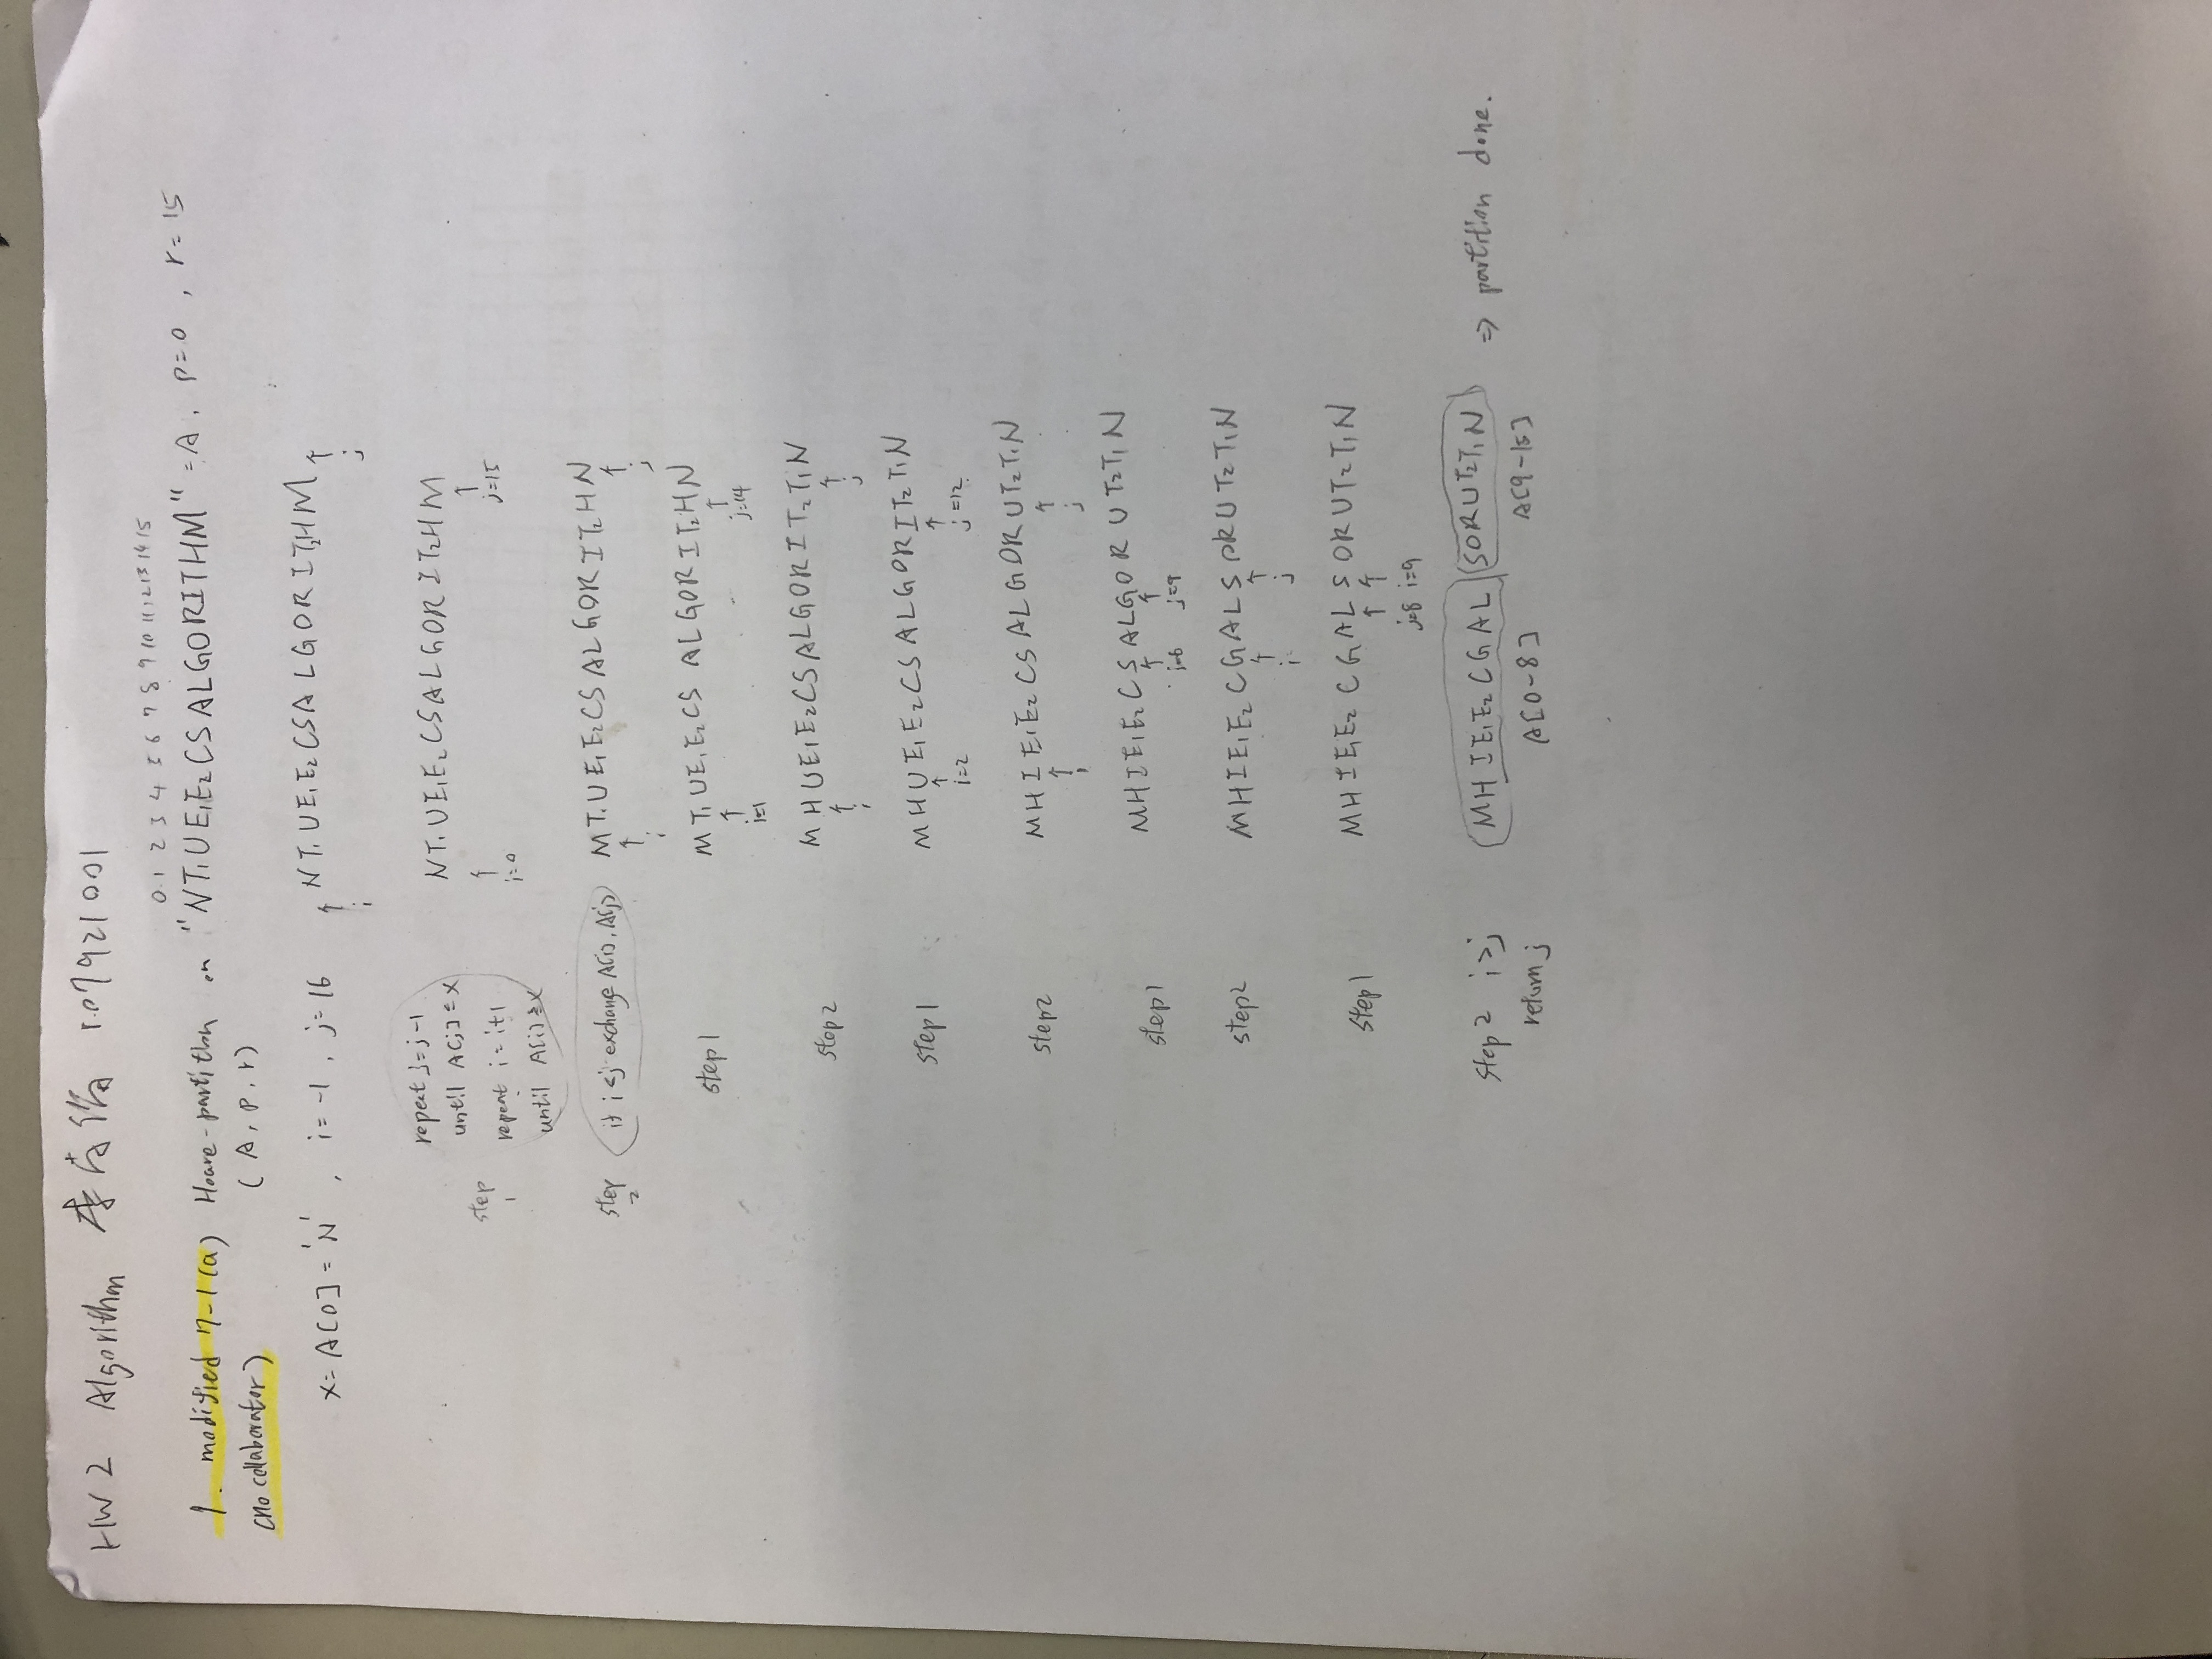 HW 2 Algorithm 李 107921001
0 1 2 3 4 5 6 7 8 9 10 11 12 13 14 15
1. modified 7-1(a) Hoare-partition on "NT₁UE₁E₂CSALGORITHM" = A, p=0, r=15
(no collaborator) (A, p, r)
x=A[0]='N', i=-1, j=16 NT₁UE₁E₂CSALGORIT₂HM
↑ ↑
i j
repeat j=j-1
until A[j]≤x NT₁UE₁E₂CSALGORIT₂HM
step 1 ↑ ↑
repeat i=i+1 i=0 j=15
until A[i]≥x
step 2 if i<j exchange A[i], A[j] MT₁UE₁E₂CSALGORIT₂HN
↑ ↑
i j
step1 MT₁UE₁E₂CSALGORIT₂HN
↑ ↑
i=1 j=14
step2 MHUE₁E₂CSALGORIT₂T₁N
↑ ↑
i j
step1 MHUE₁E₂CSALGORIT₂T₁N
↑ ↑
i=2 j=12
step2 MHIE₁E₂CSALGORUT₂T₁N
↑ ↑
i j
step1 MHIE₁E₂CSALGORUT₂T₁N
↑ ↑
i=6 j=9
step2 MHIE₁E₂CGALSORUT₂T₁N
↑ ↑
i j
step1 MHIE₁E₂CGALSORUT₂T₁N
↑ ↑
j=8 i=9
step2 i>j MHIE₁E₂CGAL SORUT₂T₁N ⇒ partition done.
return j A[0-8] A[9-15]